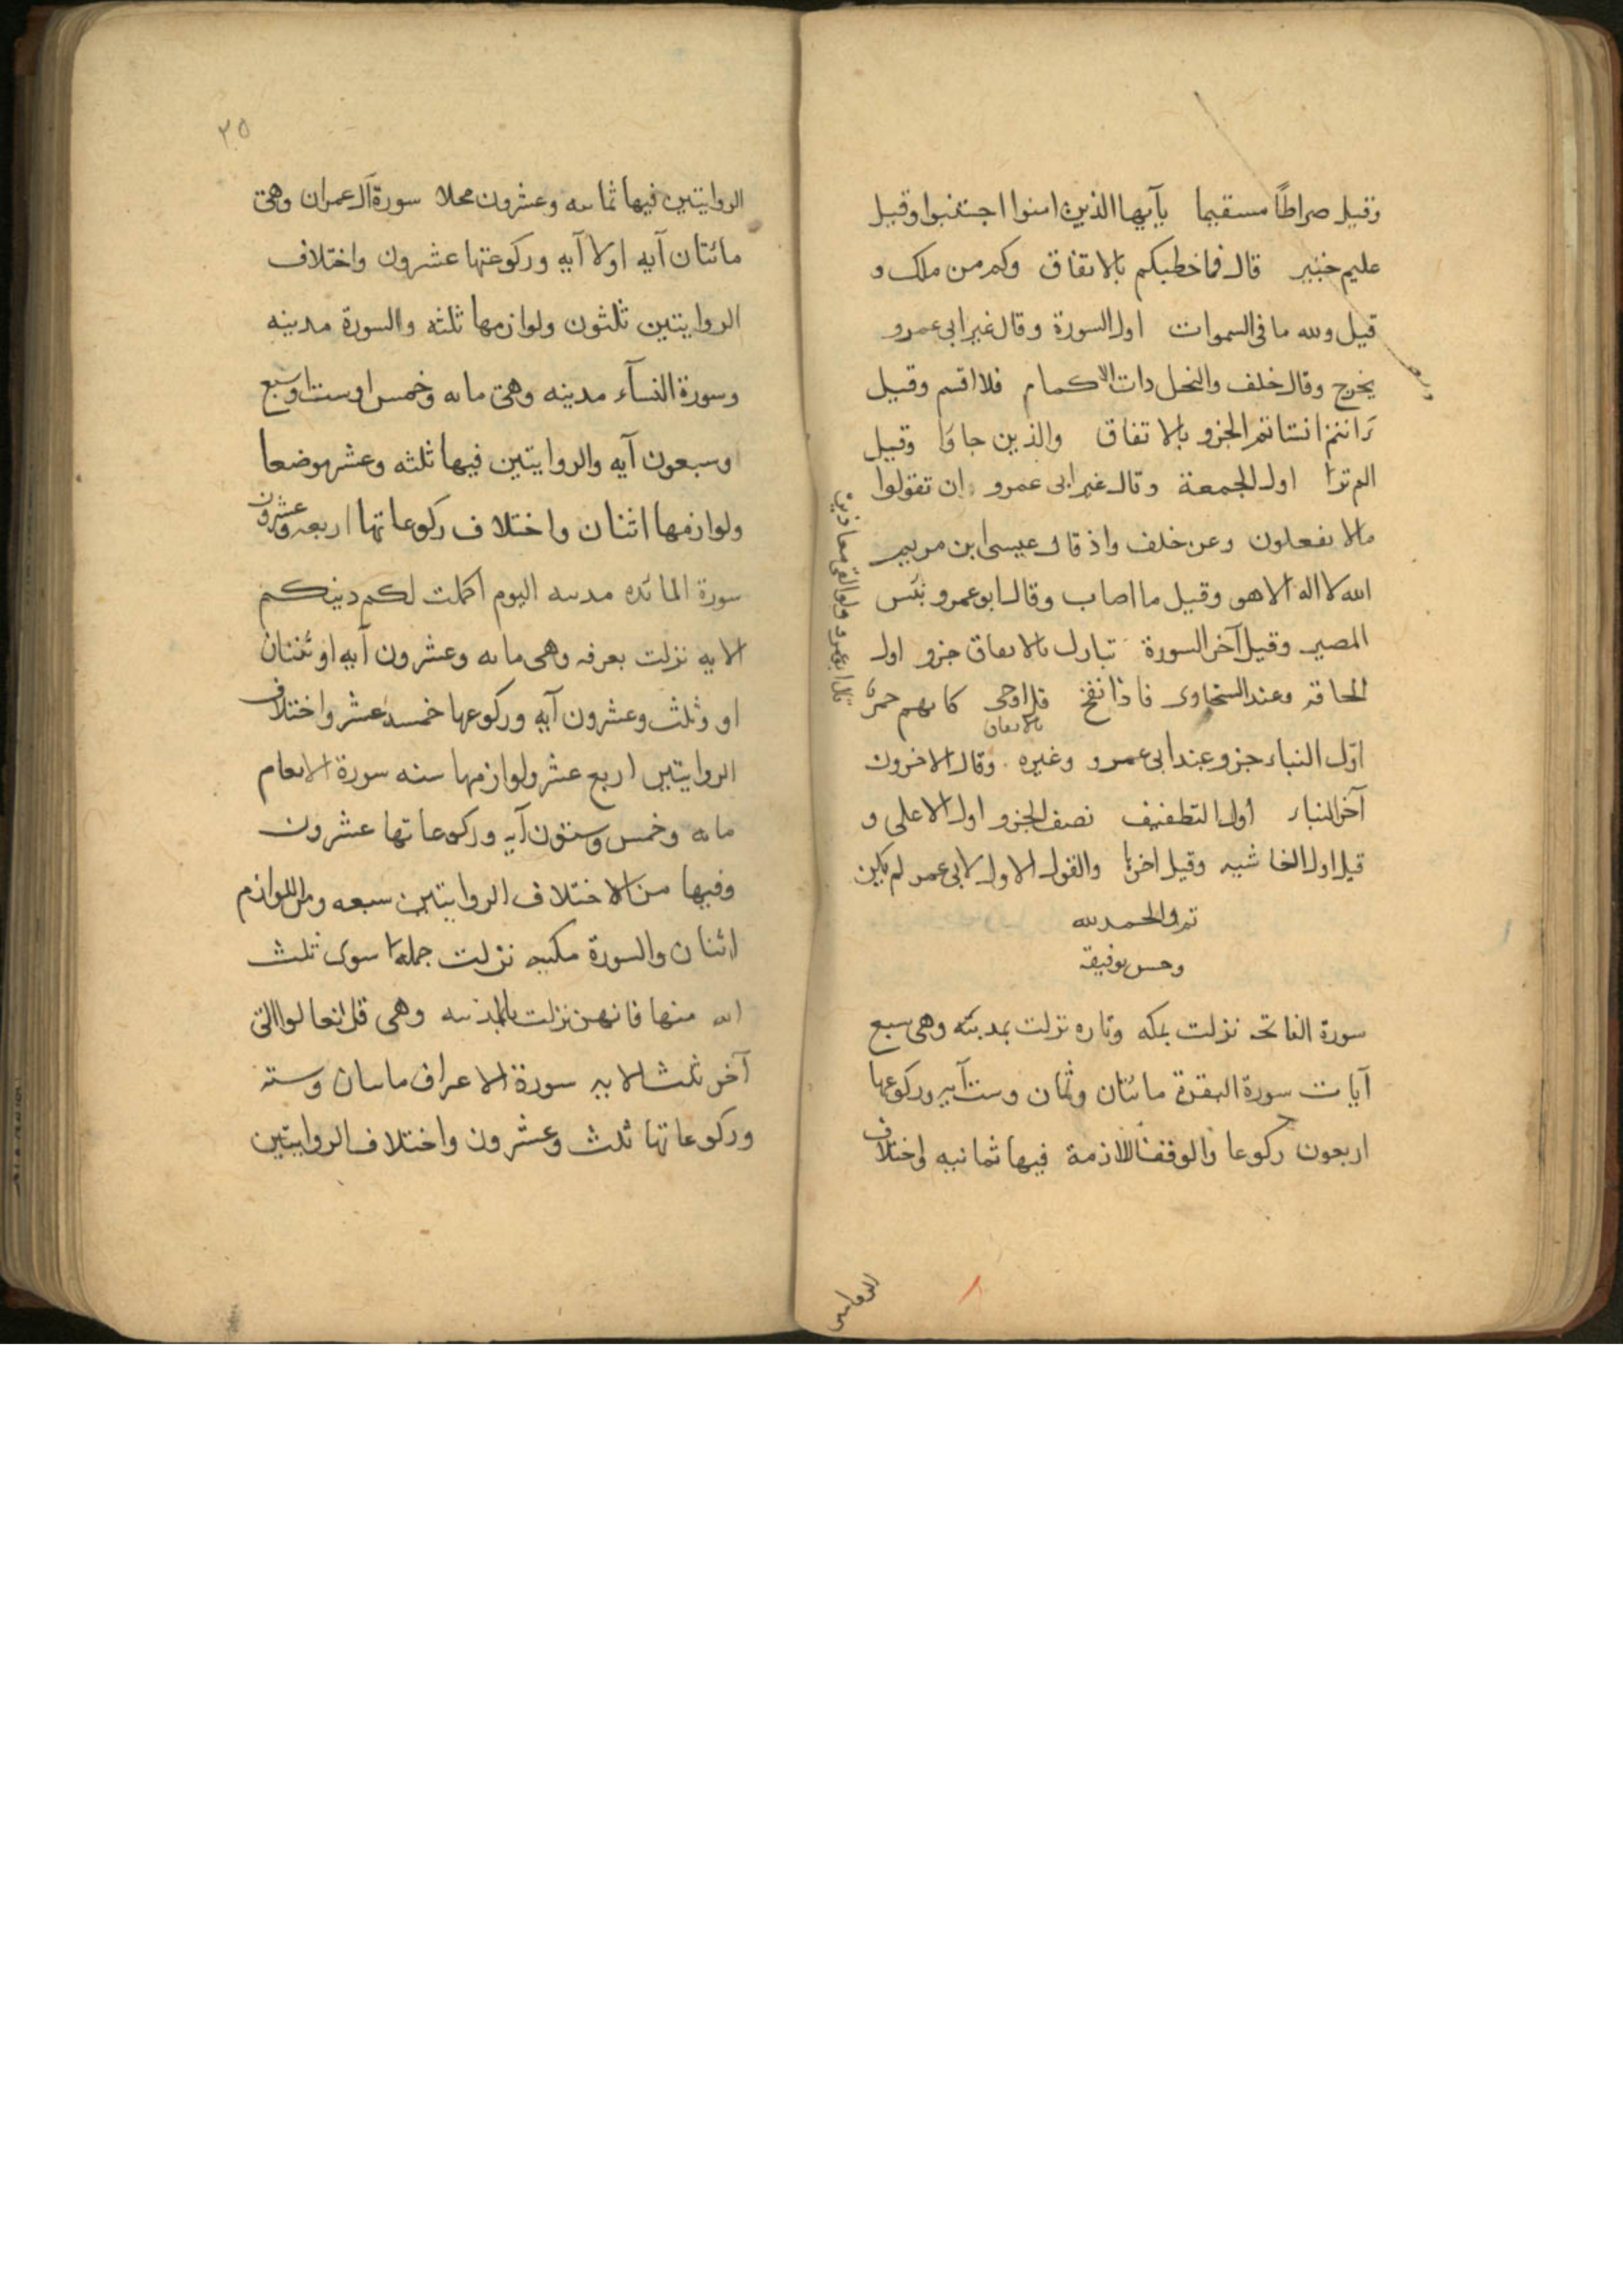 وقيل صراطًا مستقيما يآيها الذين امنوا اجتنبوا وقيل
عليم خبير قال فما خطبكم بالاتفاق وكم من ملك و
قيل ولله ما فى السموات اول السورة وقال غير ابى عمرو
يخرج وقال خلف والنخل ذات الاكمام فلا اقسم وقيل
ءانتم انشاتم الجزو بالاتفاق والذين جاوا وقيل
الم تر اول الجمعة وقال غير ابى عمرو ان تقولوا
مالا تفعلون وعن خلف واذ قال عيسى ابن مريم
الله لا اله الا هو وقيل ما اصاب وقال ابو عمرو بئس
المصير وقيل آخر السورة تبارك بالاتفاق جزو اول
الحاقه وعند السخاوى فاذا نفخ قل اوحى كانهم حمر
بالاتفاق
اوّل النباء جزو عند ابى عمرو وغيره وقال الاخرون
آخر النباء اول التطفيف نصف الجزو اول الاعلى و
قيل اول الغاشيه وقيل اخرها والقول الاول لابى عمرو لم يكن
تم والحمد لله
وحسن توفيقه
سورة الفاتحه نزلت بمكه وتاره نزلت بمدينه وهى سبع
آيات سورة البقرة مائتان وثمان وست آيه وركوعها
اربعون ركوعا والوقف اللازمة فيها ثمانيه واختلاف
٨
٣٥
الروايتين فيها ثمانيه وعشرون محلا سورة آل عمران وهى
مائتان آيه اولا آيه وركوعتها عشرون واختلاف
الروايتين ثلثون ولوازمها ثلثه والسورة مدينه
وسورة النسآء مدينه وهى مايه وخمس او ست او سبع
وسبعون آيه والروايتين فيها ثلثه وعشر موضعا
ولوازمها اثنان واختلاف ركوعاتها اربعه وعشرون
سورة المائده مدنيه اليوم اكملت لكم دينكم
الايه نزلت بعرفه وهى مايه وعشرون آيه او ثنتان
او وثلث وعشرون آيه وركوعها خمسه عشر واختلاف
الروايتين اربع عشر ولوازمها سته سورة الانعام
مايه وخمس وستون آيه وركوعاتها عشرون
وفيها من الاختلاف الروايتين سبعه ومن اللوازم
اثنان والسورة مكيه نزلت جملة سوى ثلث
ايه منها فانهن نزلت بالمدنيه وهى قل تعالوا الى
آخر ثلث الايه سورة الاعراف مايتان وسته
وركوعاتها ثلث وعشرون واختلاف الروايتين